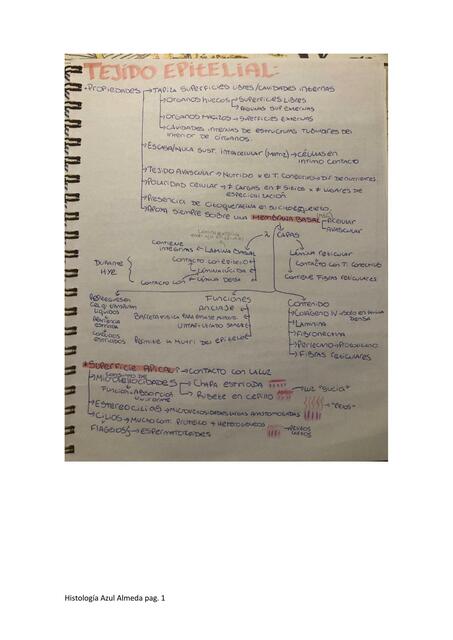 TEJIDO EPITELIAL:
• Propiedades → Tapiza superficies libres/cavidades internas
→ Organos huecos → Superficies libres
→ Algunas sup externas
→ Organos macizos → Superficies externas
→ Cavidades internas de estructuras tubulares del
interior de órganos.
→ Escasa/nula sust. intercelular (matriz) → Células en
intimo contacto
→ Tejido avascular → Nutrido x el T. conectivo x dif de nutrientes.
→ Polaridad celular → ≠ cargas en ≠ sitios x ≠ lugares de
especialización
→ Presencia de citoqueratina en su citoesqueleto.
→ Apoya siempre sobre una MEMBRANA BASAL → Acelular
Avascular
2 CAPAS
Contiene
integrinas
Lámina basal
Lámina reticular
Contacto con epitelio
Contacto con T. conectivo
Durante
Lámina lúcida
Contacto con
Lámina densa
Contiene fibras reticulares
Funciones
Anclaje
Contenido
líquidos
Colágeno IV
Laminina
Fibronectina
Perlecano
Fibras reticulares
* Superficie apical: → Contacto con la luz
Microvellosidades → Chapa estriada
Luz "sucia"
Función → Absorción
Ribete en cepillo
→ Estereocilias → Microvellosidades largas anastomosadas
"Pelos"
→ Cilios →
Flagelos → Espermatozoides
Histología Azul Almeda pag. 1